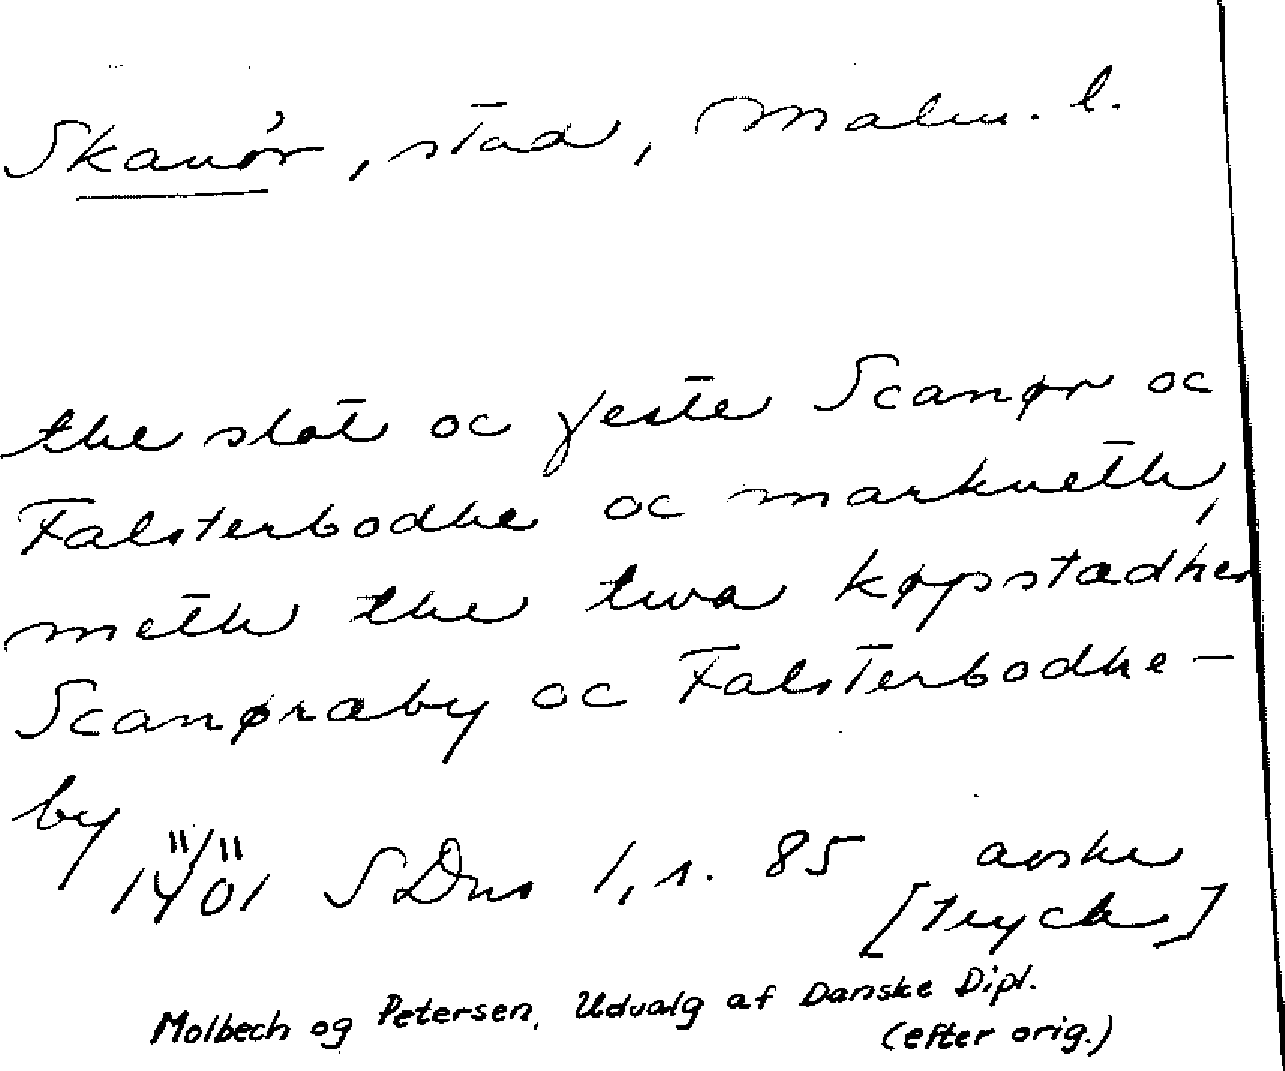 Skanör, stad, Malm. l.
the slot oc feste Scanør oc
Falsterbodhe oc markneth,
meth the twa køpstædher
Scanøræby oc Falsterbodhe-
by
11/11 1401 SDns 1, s. 85 avskr
[tryck]
Molbech og Petersen, Udvalg af Danske Dipl.
(efter orig.)